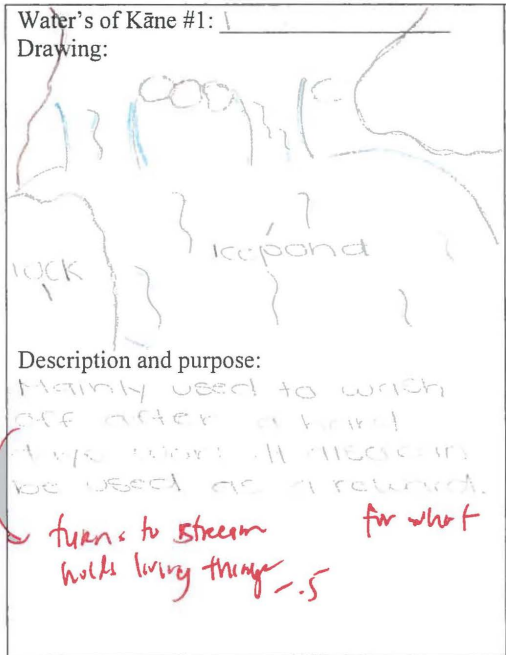 Water's of Kāne #1:
Drawing:
pond
Description and purpose:
Mainly used to wash
off after a hard
days work. It also can
be used as a reward.
turns to stream for what
holds living things -.5